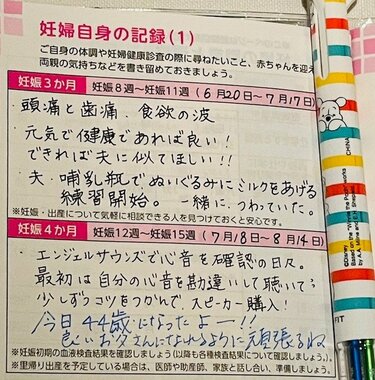 妊婦自身の記録(1)
ご自身の体調や妊婦健康診査の際に尋ねたいこと、赤ちゃんを迎え
両親の気持ちなどを書き留めておきましょう。
妊娠3か月 妊娠8週~妊娠11週(6月20日~7月17日)
・頭痛と歯痛、食欲の波
・元気で健康であれば良い!
できれば夫に似てほしい!!
・夫・哺乳瓶でぬいぐるみにミルクをあげる
練習開始。一緒に、つわっていた。
※妊娠・出産について気軽に相談できる人を見つけておくと安心です。
妊娠4か月 妊娠12週~妊娠15週(7月18日~8月14日)
・エンジェルサウンズで心音を確認の日々。
最初は自分の心音を勘違いして聴いてる
少しずつコツをつかんで、スピーカー購入!
今日44歳になったよー!!
良いお父さんになれるように頑張るね
※妊娠初期の血液検査結果を確認しましょう(以降も各種検査結果について確認しましょう)
※里帰り出産を予定している場合は、医師や助産師、家族と話し合い、準備しましょう。
CHINA
©Disney
Based on the "Winnie the Pooh" works
by A.A. Milne and E.H. Shepard
FIT